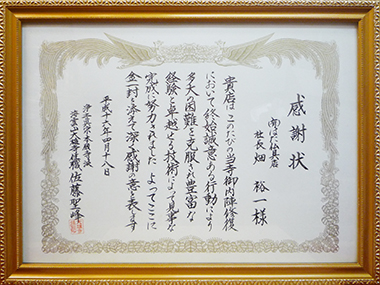 感謝状
(有)はた仏具店
社長 畑 裕一様
貴店は このたびの当寺御内陣修復
において終始誠意ある行動により
多大の困難を克服され豊富な
経験と卓越せる技術によって見事な
完成に努力されました よってここに
金一封を添えて深く感謝の意を表します
平成十六年四月十八日
浄土真宗本願寺派
住職 佐藤聖峰